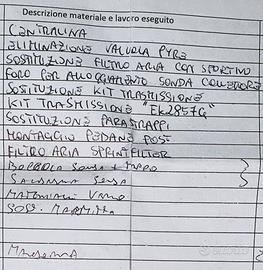 Descrizione materiale e lavoro eseguito
CENTRALINA
ELIMINAZIONE VALVOLA
SOSTITUZIONE FILTRO ARIA CON SPORTIVO
FORO PER ALLOGGIAMENTO SONDA COLLETTORE
SOSTITUZIONE KIT TRASMISSIONE
KIT TRASMISSIONE "EK2857G"
SOSTITUZIONE PARASTRAPPI
MONTAGGIO PEDANE POST
FILTRO ARIA SPRINTFILTER
SONDA + TAPPO
MATERIALE VARIO
SOST. MARMITTA